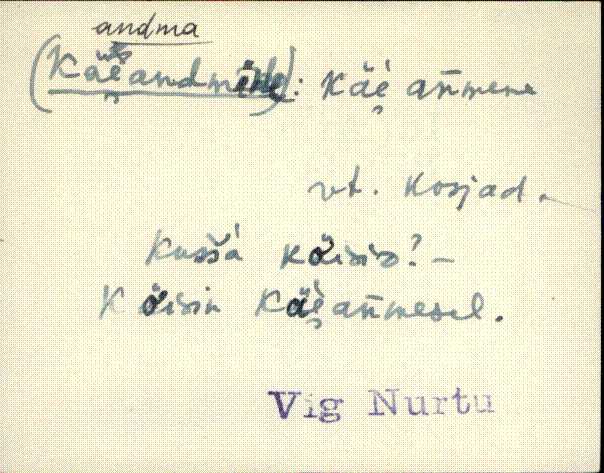 andma
(Käe andmine): käe̬ an̄mene
vt. kosjad.
Kussa käisis? –
Käisin käe̬an̄mesel.
Vig Nurtu